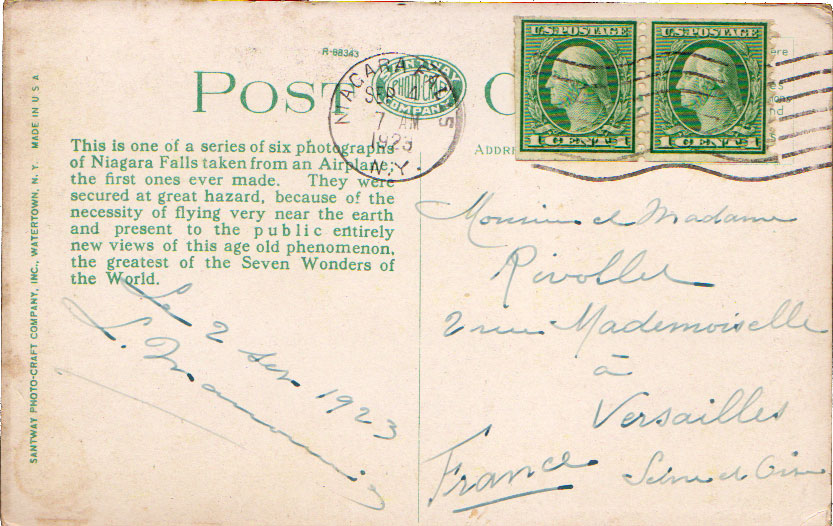 R-88343
POST C
SANTWAY PHOTO-CRAFT COMPANY, INC., WATERTOWN, N. Y. MADE IN U S A
NIAGARA FALLS
SEP 4
7 AM
1923
N.Y.
U.S. POSTAGE
1 CENT 1
U.S. POSTAGE
1 CENT 1
This is one of a series of six photographs
of Niagara Falls taken from an Airplane,
the first ones ever made. They were
secured at great hazard, because of the
necessity of flying very near the earth
and present to the public entirely
new views of this age old phenomenon,
the greatest of the Seven Wonders of
the World.
ADDRE
Le 2 Sep 1923
Monsieur et Madame
Rivollet
2 rue Mademoiselle
à
Versailles
Seine et Oise
France